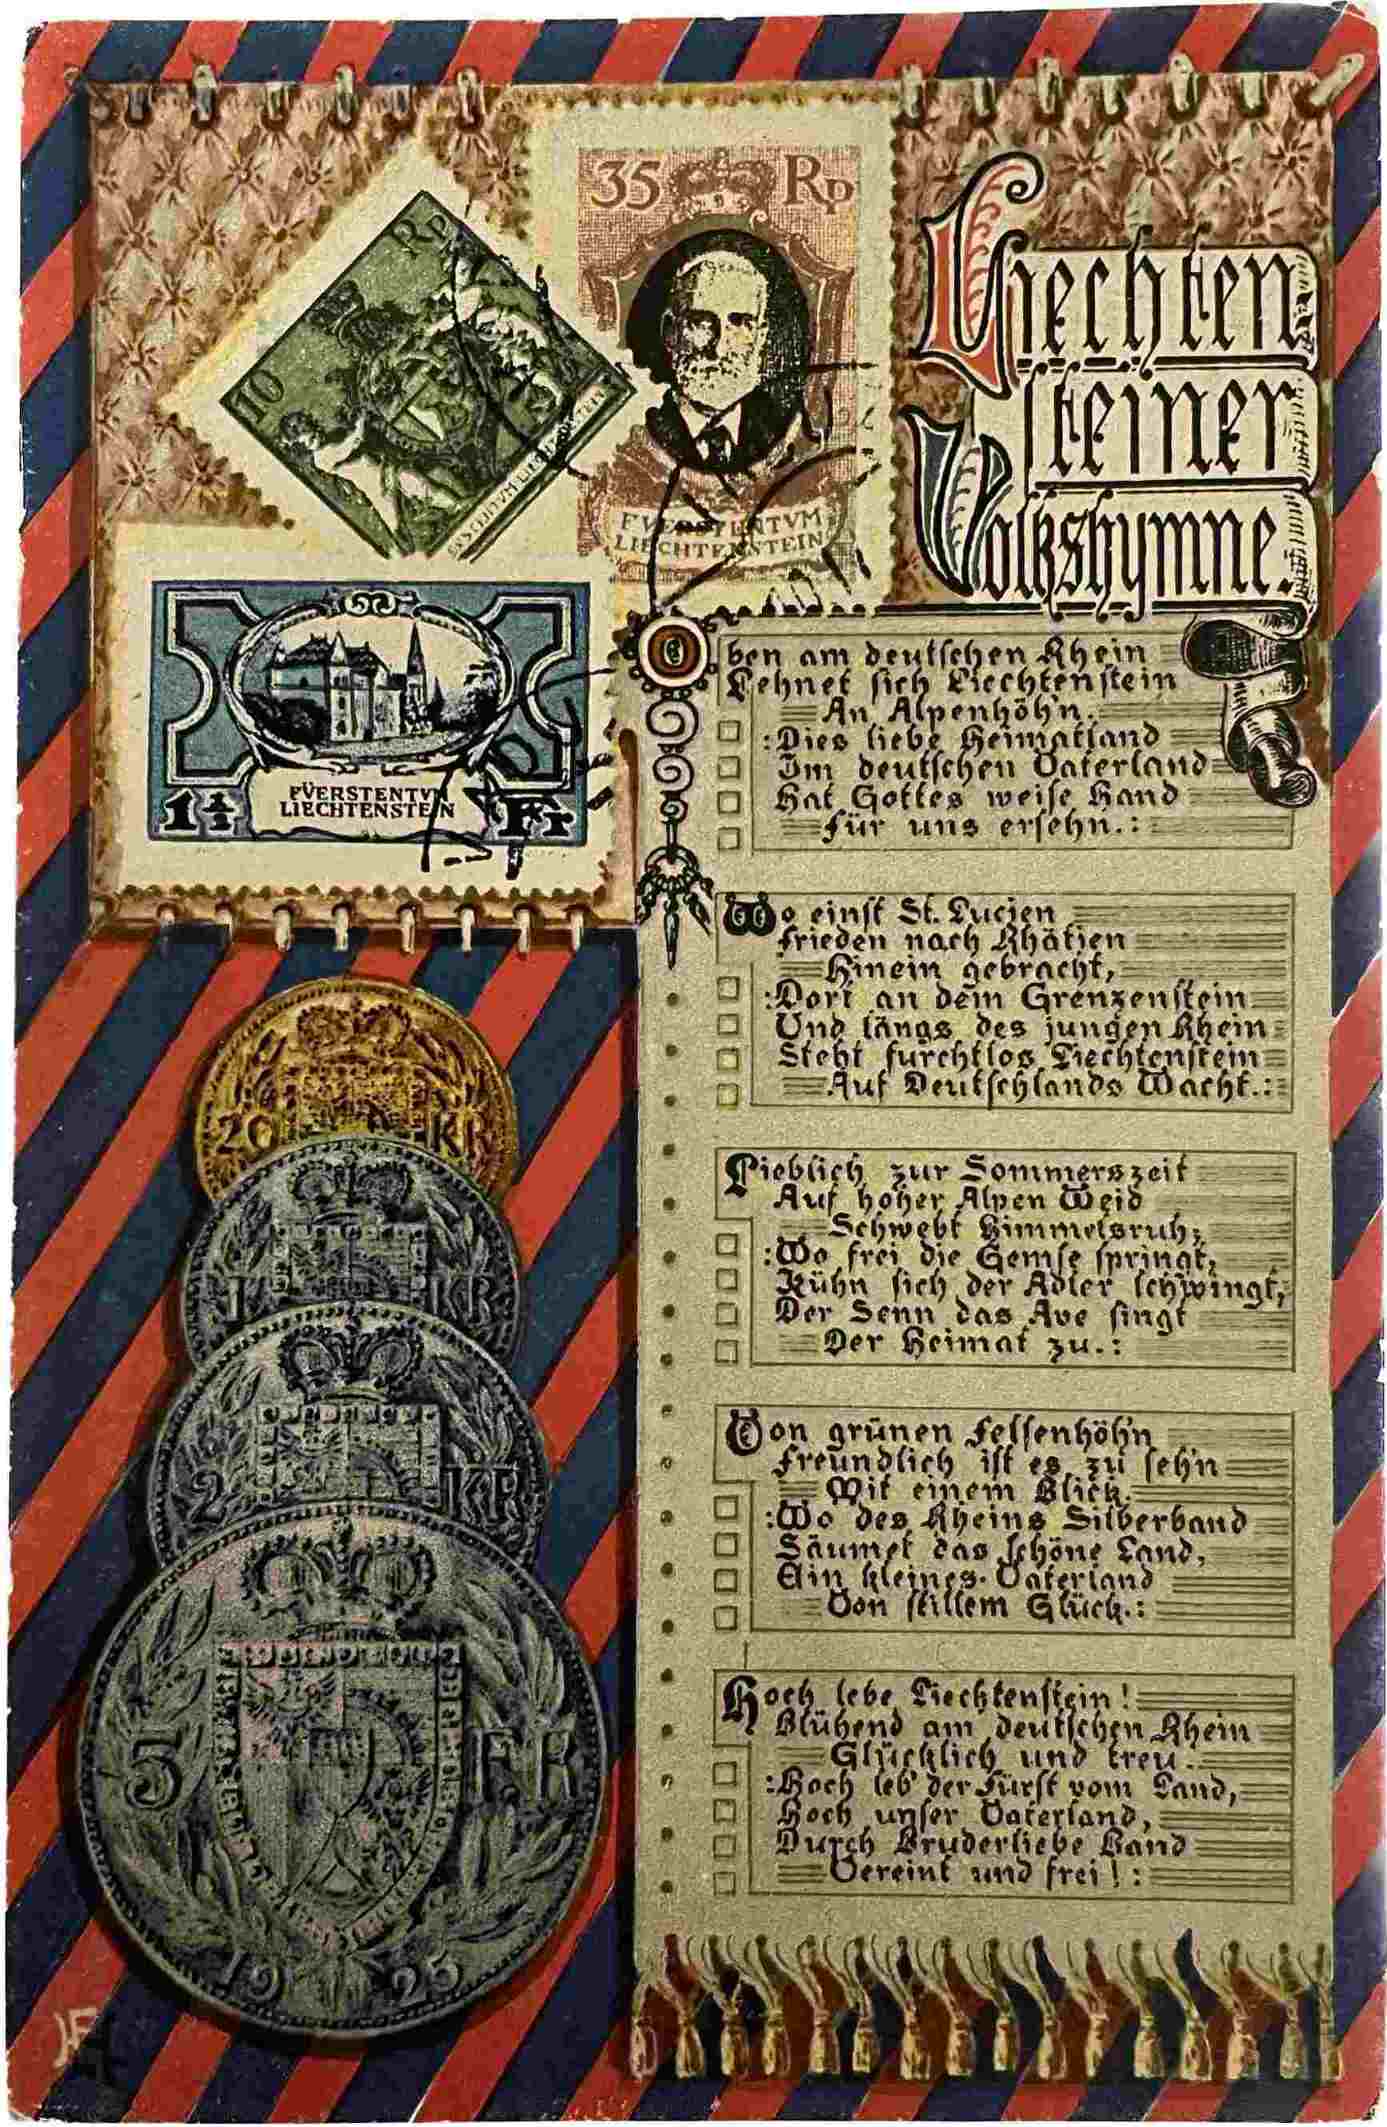 35 Rp
10 Rp
FVERSTENTVM
LIECHTENSTEIN
1½ Fr
FÜERSTENTVM
LIECHTENSTEIN
Liechten
steiner
Volkshymne.
Oben am deutschen Rhein
Lehnet sich Liechtenstein
An Alpenhöh'n.
:Dies liebe Heimatland
Im deutschen Vaterland
Hat Gottes weise Hand
Für uns erseh'n.:
Wo einst St. Lucien
Frieden nach Rhätien
Hinein gebracht,
:Dort an dem Grenzenstein
Und längs des jungen Rhein
Steht furchtlos Liechtenstein
Auf Deutschlands Wacht.:
Lieblich zur Sommerszeit
Auf hoher Alpen Weid
Schwebt Himmelsruh;
:Wo frei die Gemse springt,
Kühn sich der Adler schwingt,
Der Senn das Ave singt
Der Heimat zu.:
Von grünen Felsenhöh'n
Freundlich ist es zu seh'n
Mit einem Blick.
:Wo des Rheins Silberband
Säumet das schöne Land,
Ein kleines Vaterland
Von stillem Glück.:
Hoch lebe Liechtenstein!
Blühend am deutschen Rhein
Glücklich und treu.
:Hoch leb' der Fürst vom Land,
Hoch unser Vaterland,
Durch Bruderliebe Band
Vereint und frei!:
20 KR
1 KR
2 KR
5 FR
1925